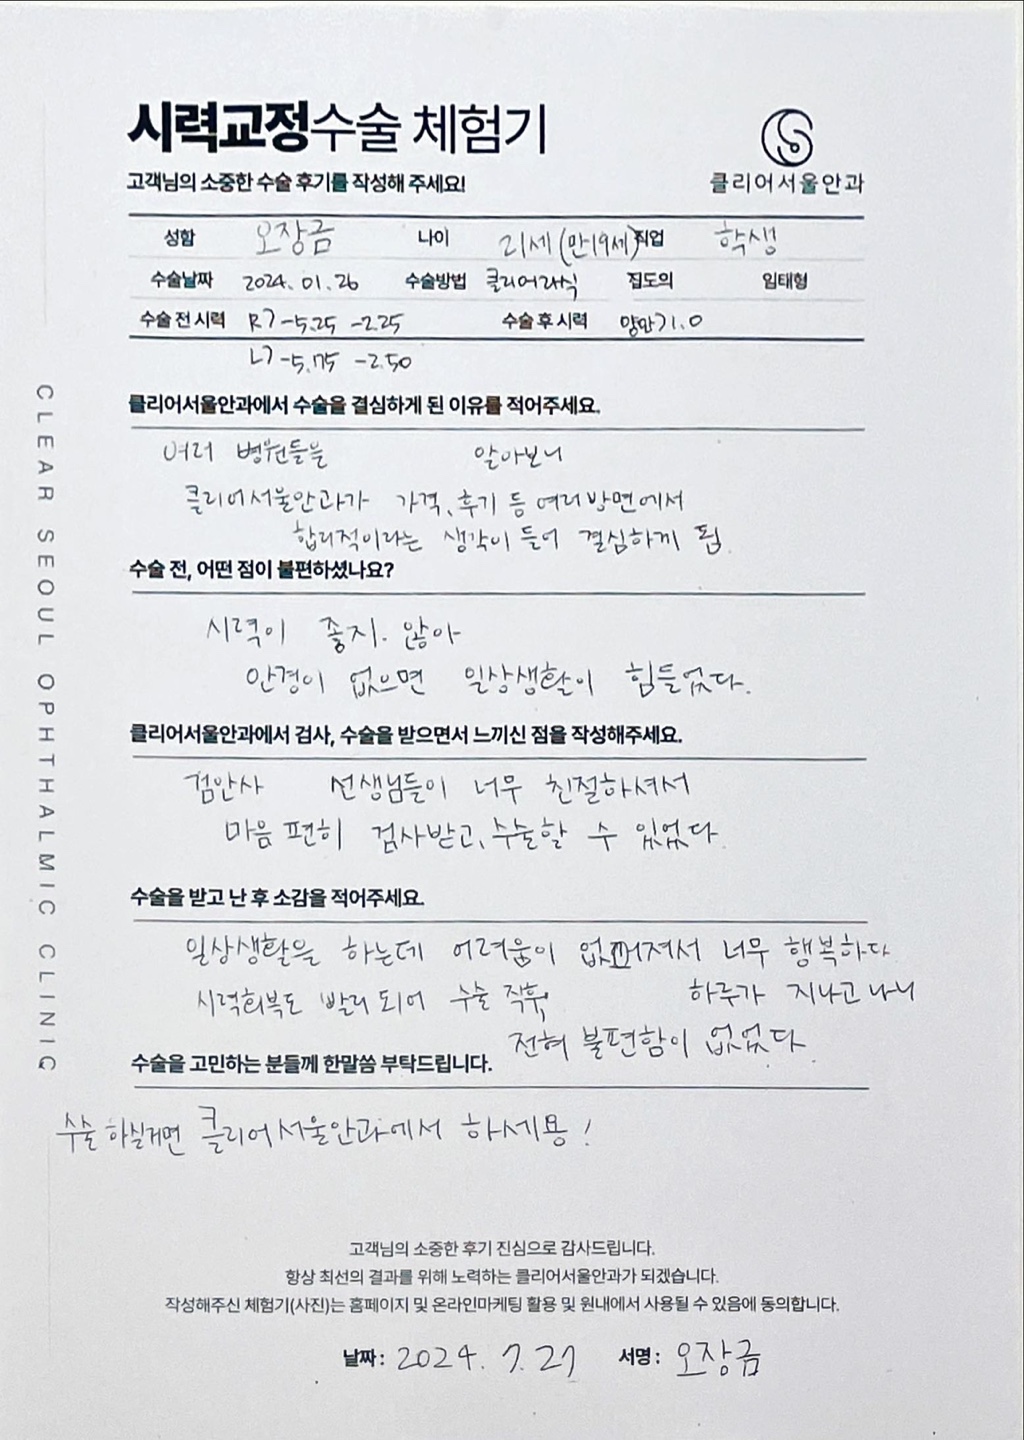 시력교정수술 체험기
고객님의 소중한 수술 후기를 작성해 주세요!
클리어서울안과
성함 오장금 나이 21세(만19세) 직업 학생
수술날짜 2024. 01. 26 수술방법 클리어라식 집도의 임태형
수술 전 시력 R) -5.25 -2.25 수술 후 시력 양안 1.0
L) -5.75 -2.50
클리어서울안과에서 수술을 결심하게 된 이유를 적어주세요.
여러 병원들을 알아보니
클리어서울안과가 가격, 후기 등 여러방면에서
합리적이라는 생각이 들어 결심하게 됨.
수술 전, 어떤 점이 불편하셨나요?
시력이 좋지 않아
안경이 없으면 일상생활이 힘들었다.
클리어서울안과에서 검사, 수술을 받으면서 느끼신 점을 작성해주세요.
검안사 선생님들이 너무 친절하셔서
마음 편히 검사받고, 수술할 수 있었다.
수술을 받고 난 후 소감을 적어주세요.
일상생활을 하는데 어려움이 없어져서 너무 행복하다
시력회복도 빨리 되어 수술 직후, 하루가 지나고 나니
전혀 불편함이 없었다.
수술을 고민하는 분들께 한말씀 부탁드립니다.
수술 하실거면 클리어서울안과에서 하세용!
고객님의 소중한 후기 진심으로 감사드립니다.
항상 최선의 결과를 위해 노력하는 클리어서울안과가 되겠습니다.
작성해주신 체험기(사진)는 홈페이지 및 온라인마케팅 활용 및 원내에서 사용될 수 있음에 동의합니다.
날짜 : 2024. 7. 27 서명 : 오장금
CLEAR SEOUL OPHTHALMIC CLINIC